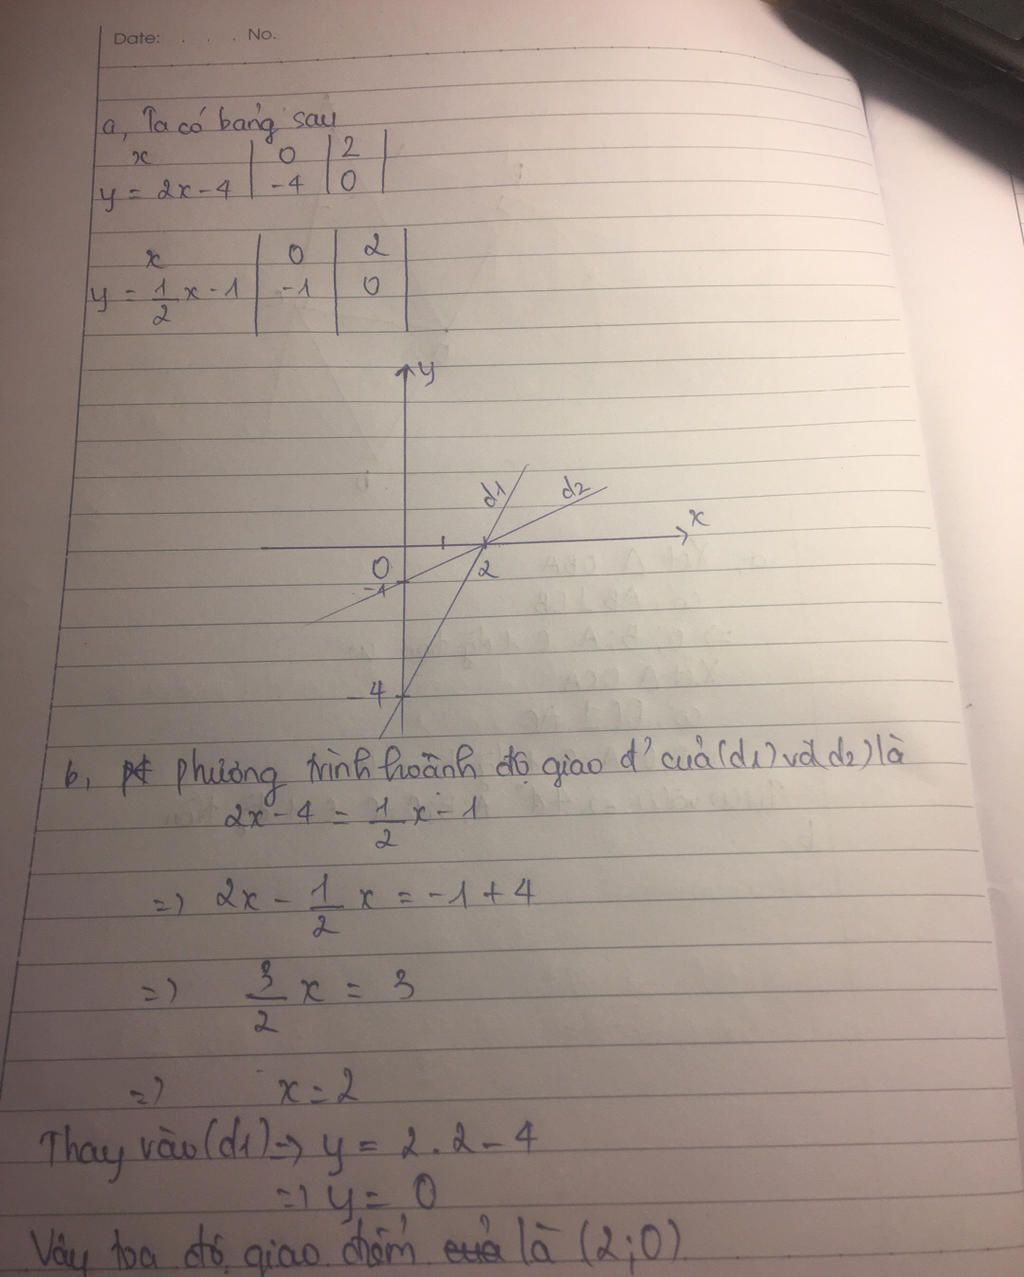 Date: . . . . No.
a, Ta có bảng sau
x | 0 | 2 |
y = 2x - 4 | -4 | 0 |
x | 0 | 2 |
y = 1/2 x - 1 | -1 | 0 |
y
d1 d2
x
0 2
-1
-4
b, phương trình hoành độ giao đ' của (d1) và (d2) là
2x - 4 = 1/2 x - 1
=> 2x - 1/2 x = -1 + 4
=> 3/2 x = 3
=> x = 2
Thay vào (d1) => y = 2.2 - 4
=> y = 0
Vậy toạ độ giao điểm là (2;0)